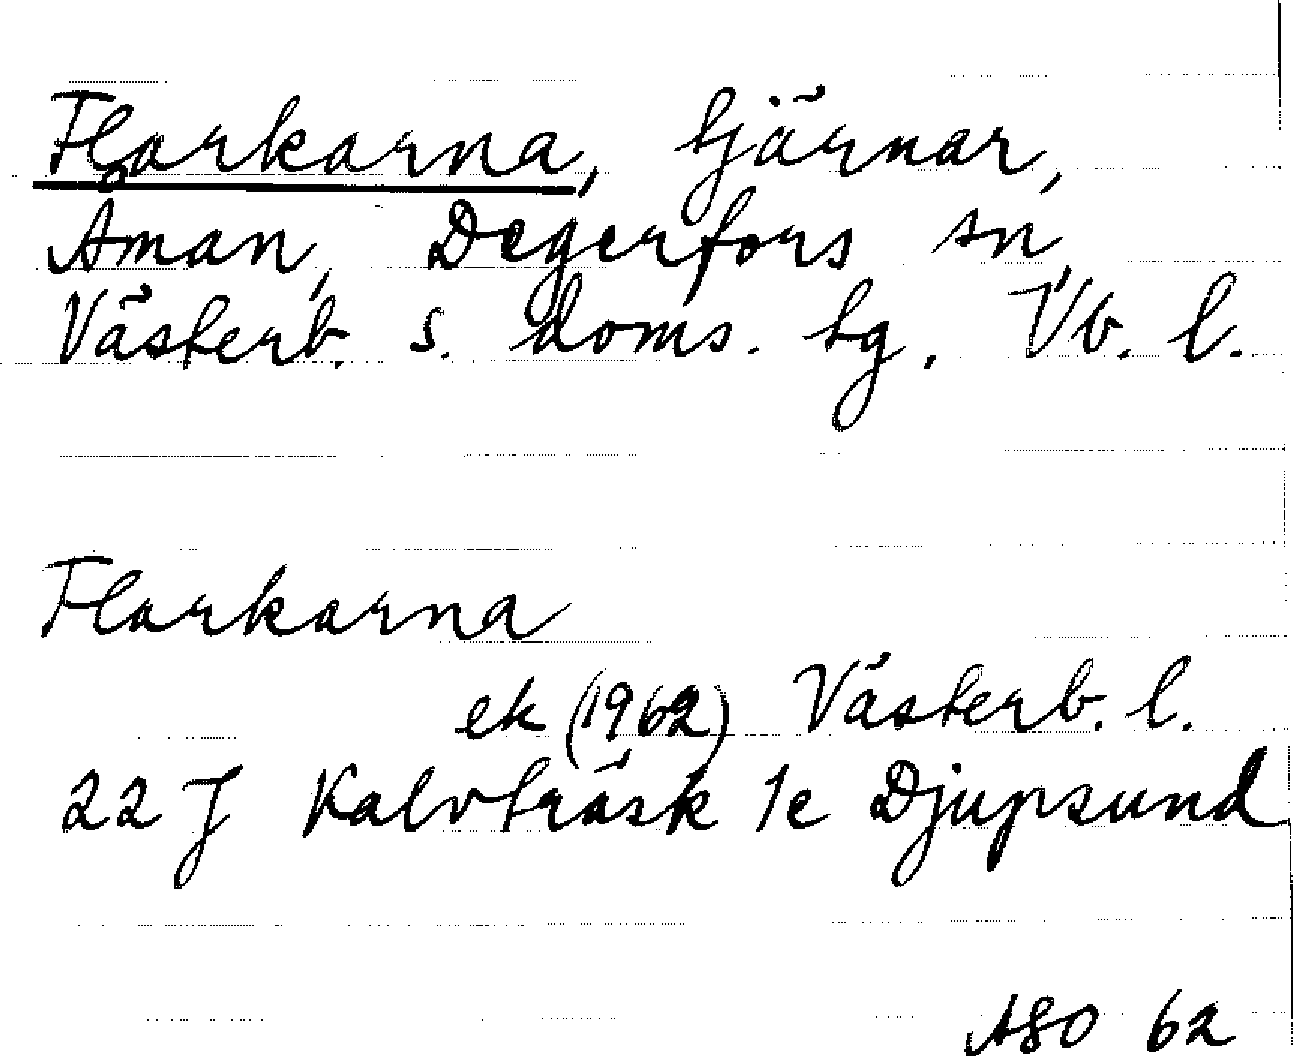 Flarkarna, tjärnar,
Åman, Degerfors sn,
Västerb. s. doms. tg, Vb. l.
Flarkarna
ek (1962) Västerb. l.
22 J Kalvträsk 1e Djupsund
ASO 62